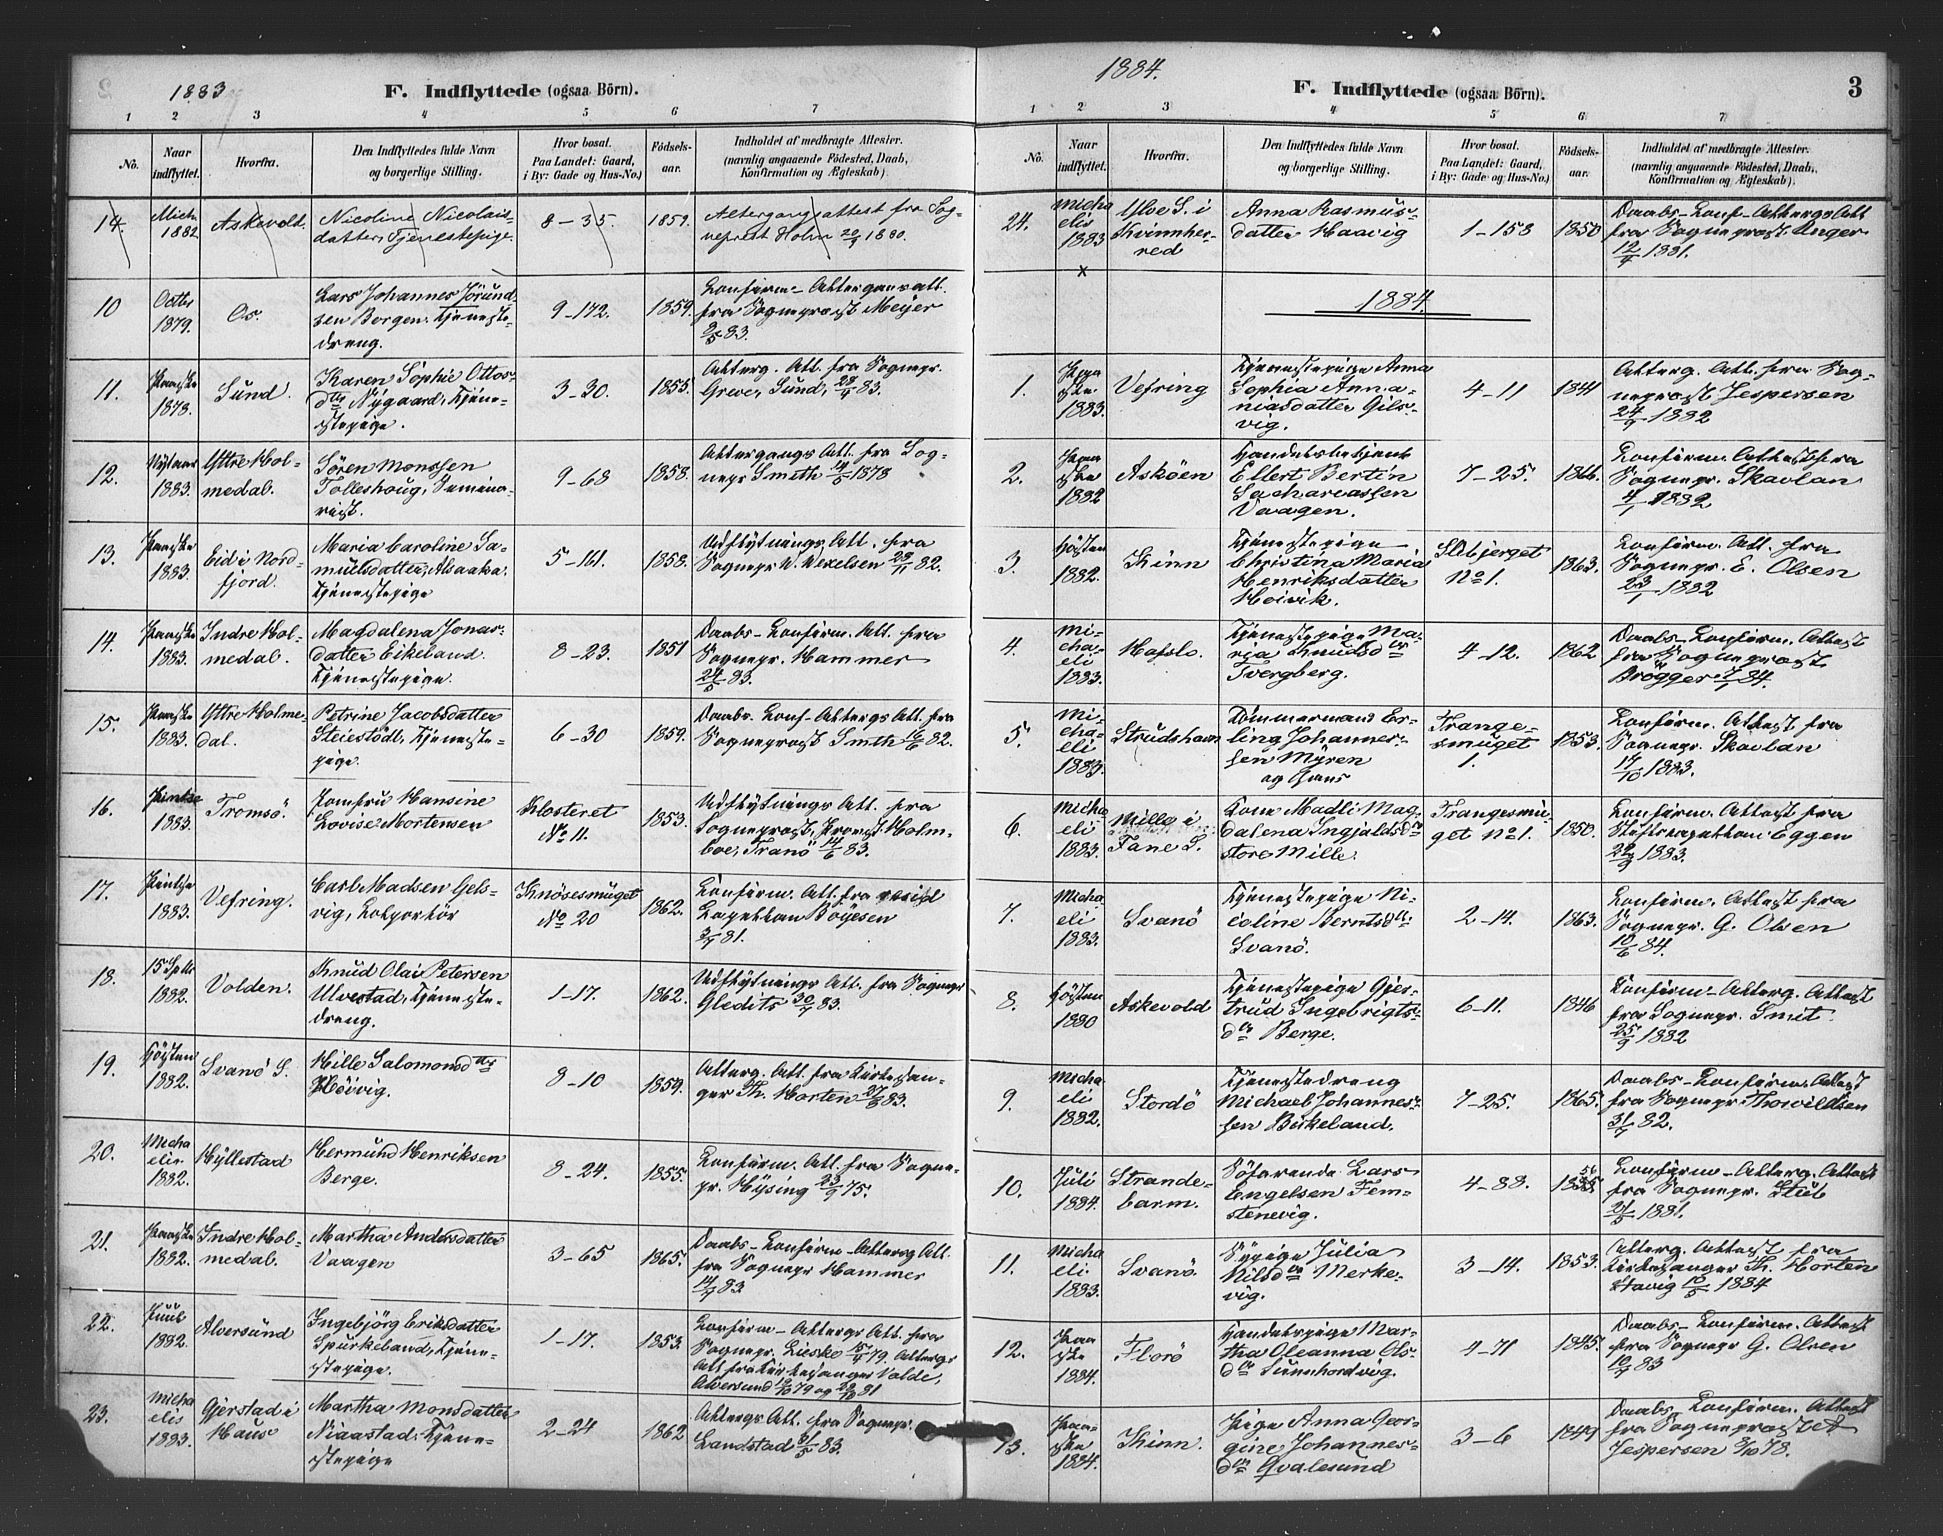 1883
F. Indflyttede (ogsaa Börn).
1 2 3 4 5 6 7
No.
Naar indflyttet.
Hvorfra.
Den Indflyttedes fulde Navn og borgerlige Stilling.
Hvor bosat. Paa Landet: Gaard, i By: Gade og Hus-No.)
Födsels-aar.
Indholdet af medbragte Attester. (navnlig angaaende Födested, Daab, Konfirmation og Ægteskab).
14. Mich. 1882 Askevold. Nicoline Nicolais-
datter, Tjenestepige. 8-35. 1859. Altergangsattest fra Sog-
nepræst Holm 20/9 1880.
10 Octbr 1879. Os. Lars Johannes Jörund-
sen Borgen. Tjeneste-
dreng. 9-172. 1859. Confirm.- Altergansatt.
fra Sogneprost Meyer
2/5 83.
11. Paaske 1878. Sund. Karen Sophie Ottos-
dtr Nygaard, Tjene-
stepige. 3-30. 1855. Alterg. Att. fra Sognepr.
Greve, Sund, 28/4 83.
12. Nytaar 1883. Yttre Hol-
medal. Sören Monssen
Tolleshoug, Semina-
rist. 9-68 1858. Altergangs Att. fra Sog-
nepr Smith 14/5 1878
13. Paaske 1883. Eid i Nord-
fjord. Maria Caroline Sa-
muelsdatter, Alsaaka.
Tjenestepige 5-161. 1858. Udflytnings Att. fra
Sognepr. W. Wexelsen 28/11 82.
14. Paaske 1883. Indre Hol-
medal. Magdalena Jonas-
datter Eikeland.
Tjenestepige. 8-23. 1851 Daabs-Confirm. Att. fra
Sognepr. Hammer
24/5 83.
15. Paaske 1883. Yttre Holme-
dal. Petrine Jacobsdatter
Steiestödl, Tjeneste-
pige. 6-30 1859. Daabs- Conf-Altergs Att. fra
Sogneprost Smith 16/6 82.
16. Pintse 1883. Tromsö. Jomfru Hansine
Lovise Mortensen Klosteret
No 11. 1853. Udflytnings Att. fra
Sogneprost, Provst Holm-
boe, Tranö 14/6 83.
17. Pintse 1883. Vefring. Carl Madsen Gels-
vig, Colportör Knösesmuget
No 20 1862. Confirm. Att. fra resid
Capellan Böyesen
3/7 81.
18. 15 Septbr 1882. Volden. Knud Olai Petersen
Ulvestad, Tjeneste-
dreng. 1-17. 1862. Udflytnings Att. fra Sognepr
Gledits 30/7 83.
19. Hösten 1882. Svanö S. Hille Salomonsdtr
Höivig. 8-10 1859. Alterg. Att. fra Kirkesan-
ger Th. Horten 27/8 83.
20. Michaelis 1882. Hyllestad Hermund Henriksen
Berge. 8-24. 1855. Confirm. Att. fra Sogne-
pr. Hysing 23/9 75.
21. Paaske 1882. Indre Hol-
medal. Martha Andersdatter
Vaagen 3-65 1865. Daabs-Confirm-Alterg Att.
fra Sognepr Hammer
14/9 83.
22. Juul 1882. Alversund Ingebjörg Eriksdatter
Spurkeland, Tjene-
stepige. 1-17. 1853. Confirm-Altergs Att. fra
Sognepr. Lieske 15/4 79. Altergs
Att fra Kirkesanger Valde,
Alversund 12/10 79 og 22/10 81
23. Michaelis 1883. Gjerstad i
Haus Martha Monsdatter
Niaastad. Tjene-
stepige 2-24 1862 Altergs Att. fra Sognepr.
Landstad 31/5 83.
1884.
F. Indflyttede (ogsaa Börn).
3
1 2 3 4 5 6 7
No.
Naar indflyttet.
Hvorfra.
Den Indflyttedes fulde Navn og borgerlige Stilling.
Hvor bosat. Paa Landet: Gaard, i By: Gade og Hus-No.)
Födsels-aar.
Indholdet af medbragte Attester. (navnlig angaaende Födested, Daab, Konfirmation og Ægteskab).
24. Michaelis 1883 x Ölve S. i
Kvinnher-
red Anna Rasmus-
datter Haavig 1-158 1850 Daabs-Conf-Altergs Att
fra Sogneprost Unger
12/4 1881.
1884.
1. Paaske 1883. Vefring Tjenestepige Anna
Sophia Anna-
niasdatter Gils-
vig. 4-11 1841 Alterg. Att. fra Sog-
neprost Jespersen
24/9 1882
2. Paaske 1882 Asköen Handelsbetjent
Ellert Bertin
Sachariassen
Vaagen. 7-25. 1866. Confirm. Attest fra
Sognepr. Skavlan
4/1 1882
3. Hösten 1882. Kinn Tjenestepige
Christina Maria
Henriksdatter
Hovik. Slibjerget
No 1. 1863. Confirm. Att. fra
Sognepr. E. Olsen
23/1 1882
4. Michaeli 1883. Hafslo. Tjenestepige Ma-
ria Knudsdtr
Tvergberg. 4-12. 1862. Daabs-Confirm. Attest
fra Sogneprost
Brögger 7/1 84.
5. Michaeli 1883. Strudshavn Tömmermand Er-
ling Johannes-
sen Myren
og Hans Trange-
smuget
1. 1853. Confirm. Attest fra
Sognepr. Skavlan
17/10 1883.
6. Michaeli 1883. Mille i
Fane S. Kone Madli Mag-
dalena Ingjaldsdtr
store Mille. Trangesmu-
get No 1. 1850. Confirm. Attest fra
Stiftscapellan Eggen
22/9 1883.
7. Michaeli 1883. Svanö Tjenestepige Ni-
coline Berntsdtr
Svanö. 2-14. 1863. Confirm. Attest fra
Sognepr. G. Olsen
10/6 84.
8. Hösten 1880 Askevold Tjenestepige Gjer-
trud Ingebrigts-
dtr Berge. 6-11. 1846 Confirm-Alterg. Attest
fra Sognepr. Smit.
25/9 1882
9. Michaeli 1882. Stordö Tjenestedreng
Michael Johannes-
sen Birkeland. 7-25. 1865. Daabs-Confirm. Attest
fra Sognepr. Thorvildsen
31/7 82.
10. Juli 1884. Strande-
barm. Söfarende Lars
Engelsen Fem-
stenevig. 4-88. 1855 56 Confirm-Alterg. Attest
fra Sognepr. Stub
21/5 1881.
11. Michaeli 1883. Svanö. Sypige Julia
Nilsdtr Merke-
vig. 3-14. 1853. Alterg. Attest fra
Kirkesanger Th. Horten
10/5 1884
12. Paaske 1884. Florö Handelspige Mar-
tha Oleanna Ols-
dtr Sunnhordvig. 4-71 1845. Daabs-Confirm. Attest
fra Sognepr G. Olsen
10/9 83
13. Paaske 1884. Kinn. Pige Anna Geor-
gine Johannes-
dtr Qvalesund 3-6 1849 Daabs-Confirm. Attest
fra Sogneprostet
Jespersen 8/10 78.